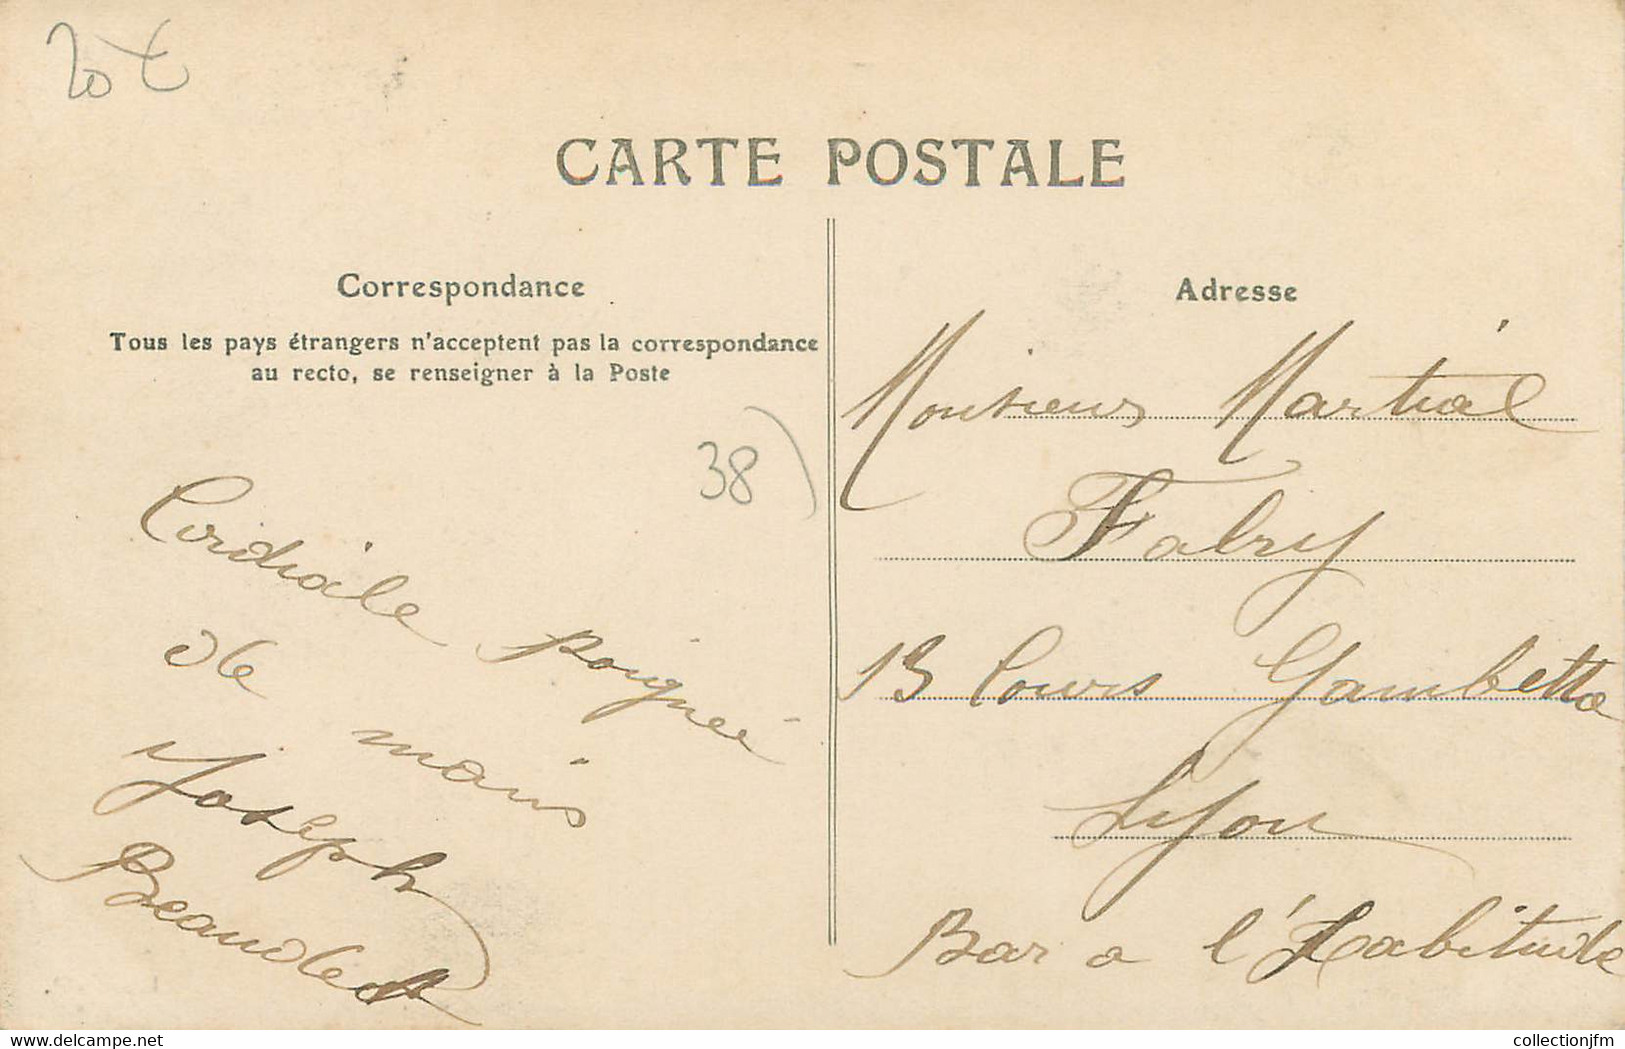 20€
CARTE POSTALE
Correspondance
Tous les pays étrangers n'acceptent pas la correspondance
au recto, se renseigner à la Poste
38)
Cordiale poignée
de mains
Joseph
Adresse
Monsieur Martial
Fabry
13 Cours Gambetta
Lyon
Bar a l'Habitude
delcampe.net
collectionjfm